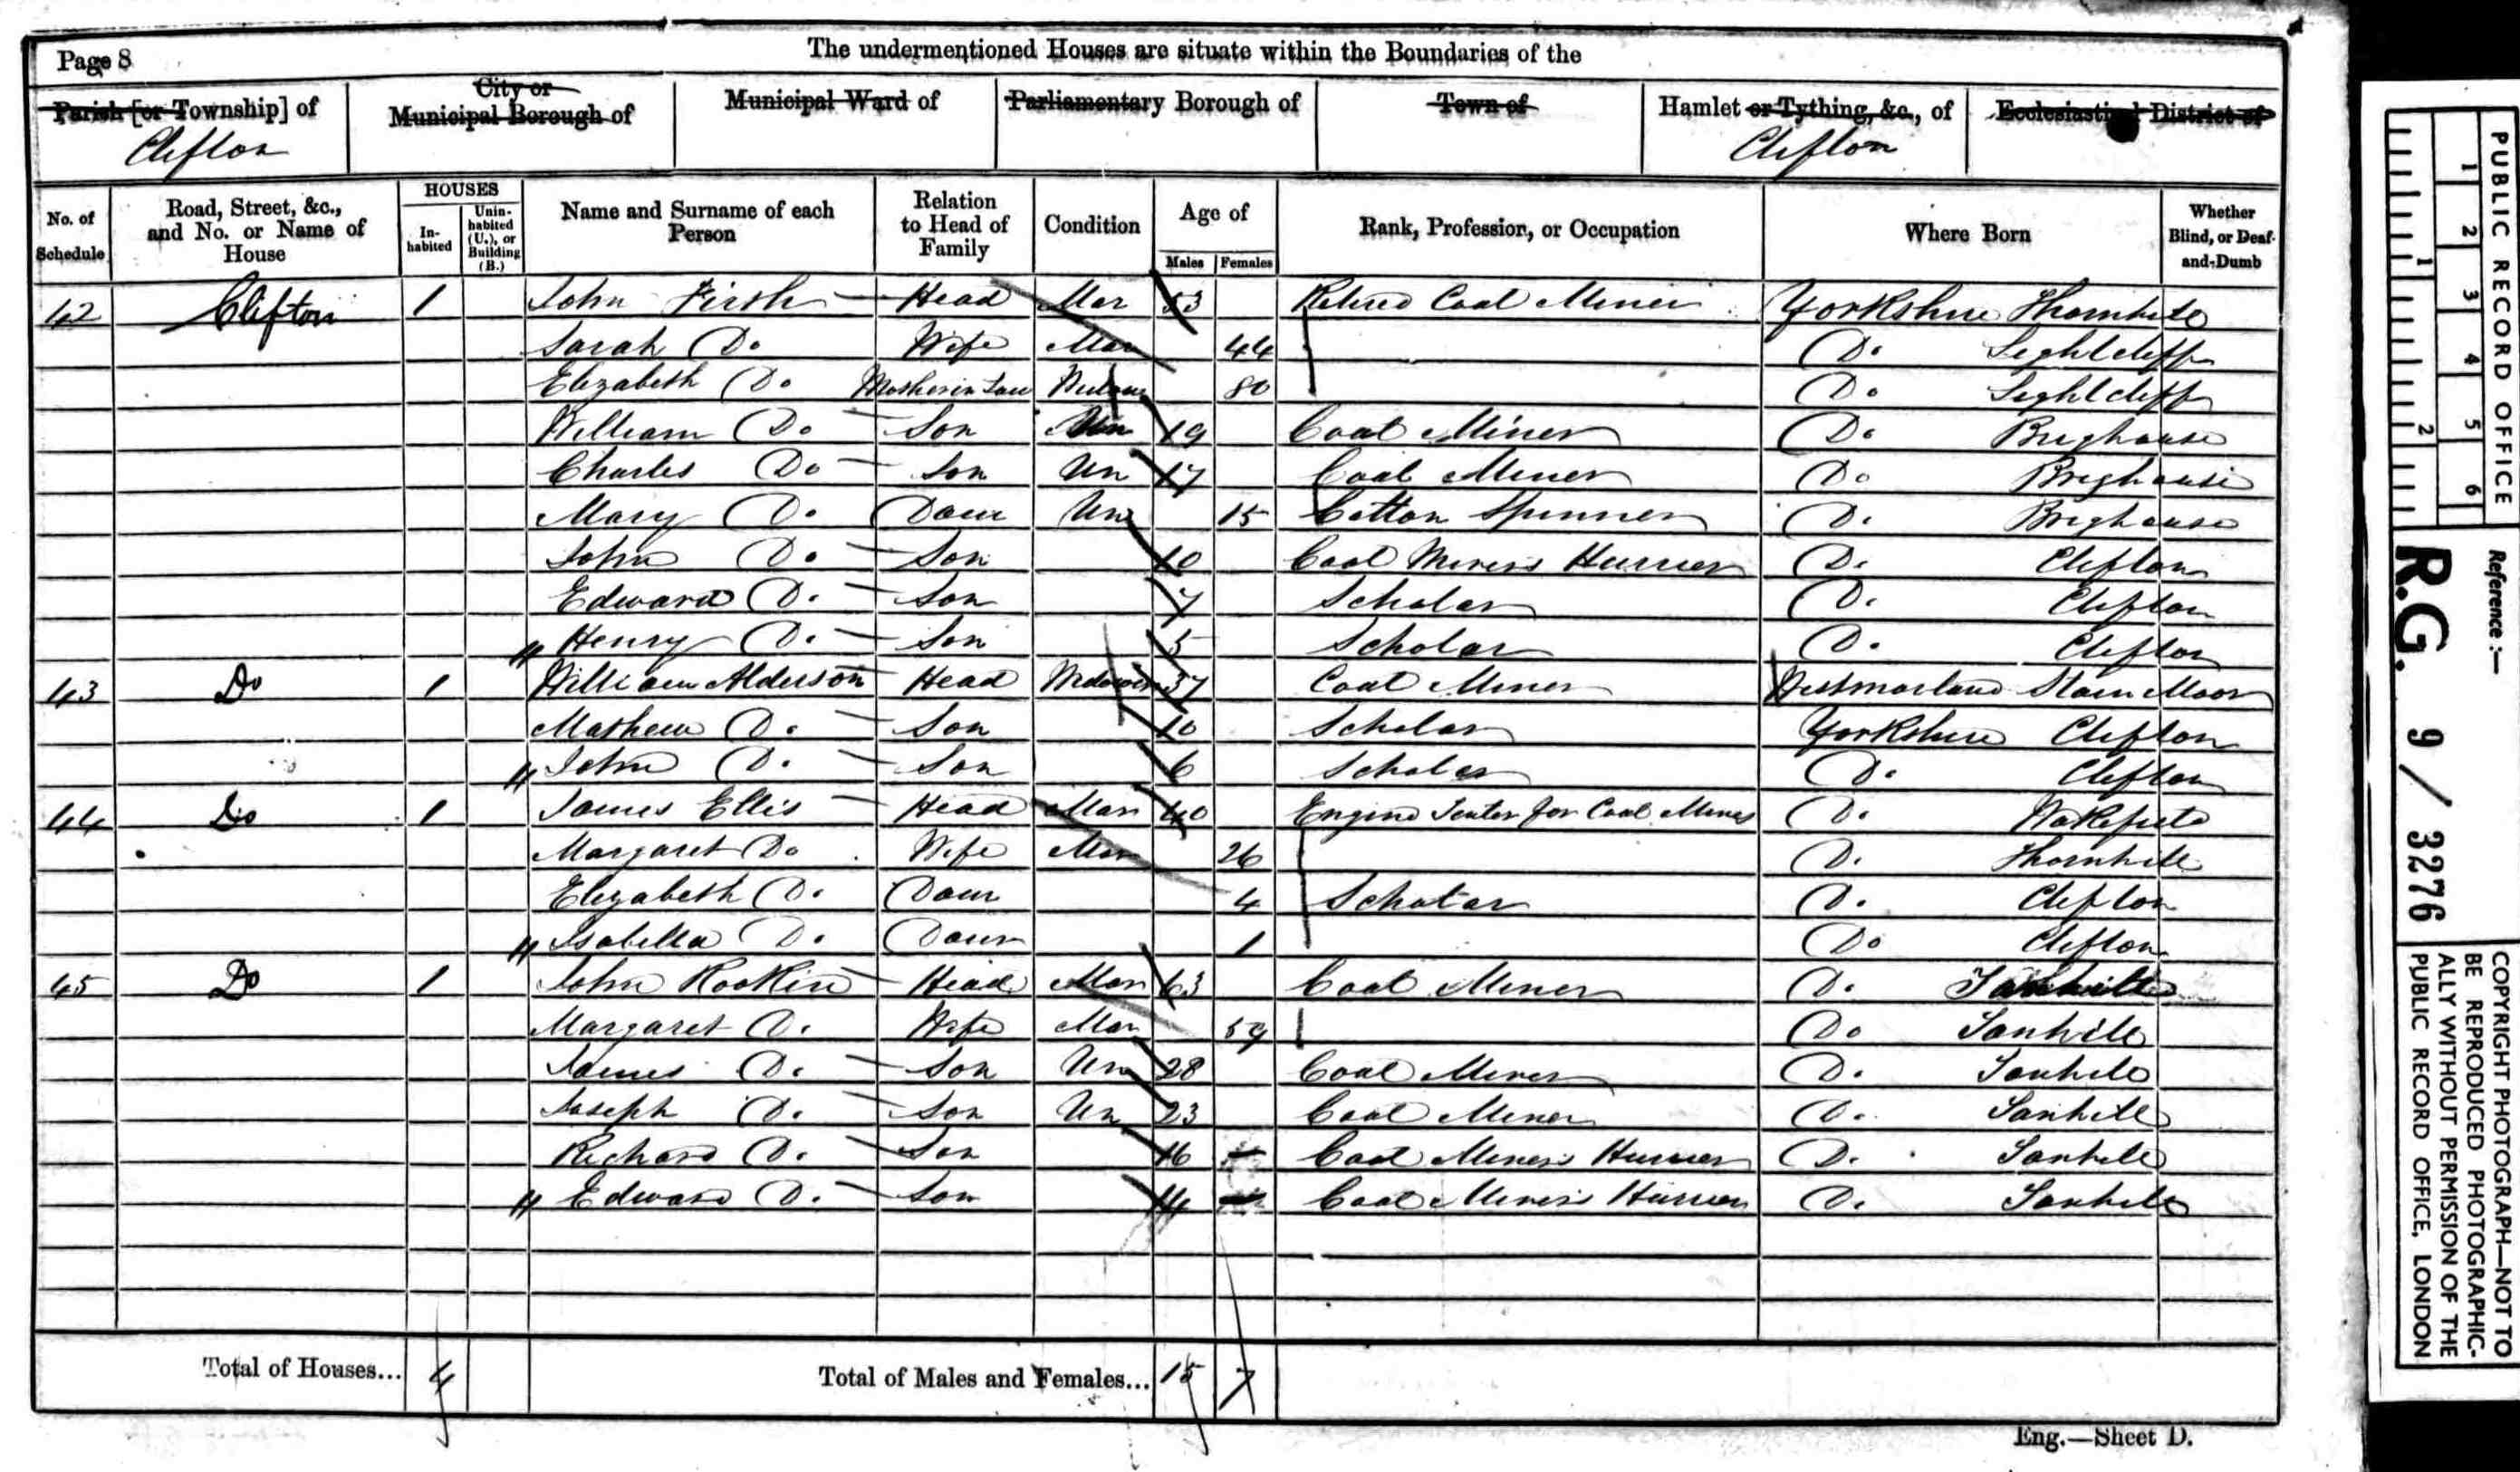 Page 8 The undermentioned Houses are situate within the Boundaries of the
Parish [or Township] of City or Municipal Borough of Municipal Ward of Parliamentary Borough of Town of Hamlet or Tything, &c., of Ecclesiastical District of
Clifton Clifton
No. of Schedule Road, Street, &c., and No. or Name of House HOUSES Inhabited Uninhabited (U.), or Building (B.) Name and Surname of each Person Relation to Head of Family Condition Age of Males Females Rank, Profession, or Occupation Where Born Whether Blind, or Deaf-and-Dumb
42 Clifton 1 John Firth Head Mar 53 Retired Coal Miner Yorkshire Thornhill
Sarah Do Wife Mar 44 Do Lightcliff
Elizabeth Do Mother in Law Widow 80 Do Lightcliff
William Do Son Un 19 Coal Miner Do Brighouse
Charles Do Son Un 17 Coal Miner Do Brighouse
Mary Do Daur Un 15 Cotton Spinner Do Brighouse
John Do Son 10 Coal Miners Hurrier Do Clifton
Edward Do Son 7 Scholar Do Clifton
" Henry Do Son 5 Scholar Do Clifton
43 Do 1 William Alderson Head Widower 37 Coal Miner Westmorland Stain Moor
Mathew Do Son 10 Scholar Yorkshire Clifton
" John Do Son 6 Scholar Do Clifton
44 Do 1 James Ellis Head Mar 40 Engine Tenter for Coal Mines Do Wakefield
Margaret Do Wife Mar 26 Do Thornhill
Elizabeth Do Daur 4 Scholar Do Clifton
" Isabella Do Daur 1 Do Clifton
45 Do 1 John Rookin Head Mar 63 Coal Miner Do Tanhill
Margaret Do Wife Mar 59 Do Tanhill
James Do Son Un 28 Coal Miner Do Tanhill
Joseph Do Son Un 23 Coal Miner Do Tanhill
Richard Do Son 16 Coal Miners Hurrier Do Tanhill
" Edward Do Son 14 Coal Miners Hurrier Do Tanhill
Total of Houses... 4 Total of Males and Females... 15 7
Eng.—Sheet D.
PUBLIC RECORD OFFICE
1 2 3 4 5 6
1 2
Reference:—
R.G. 9/3276
COPYRIGHT PHOTOGRAPH—NOT TO
BE REPRODUCED PHOTOGRAPHIC-
ALLY WITHOUT PERMISSION OF THE
PUBLIC RECORD OFFICE, LONDON